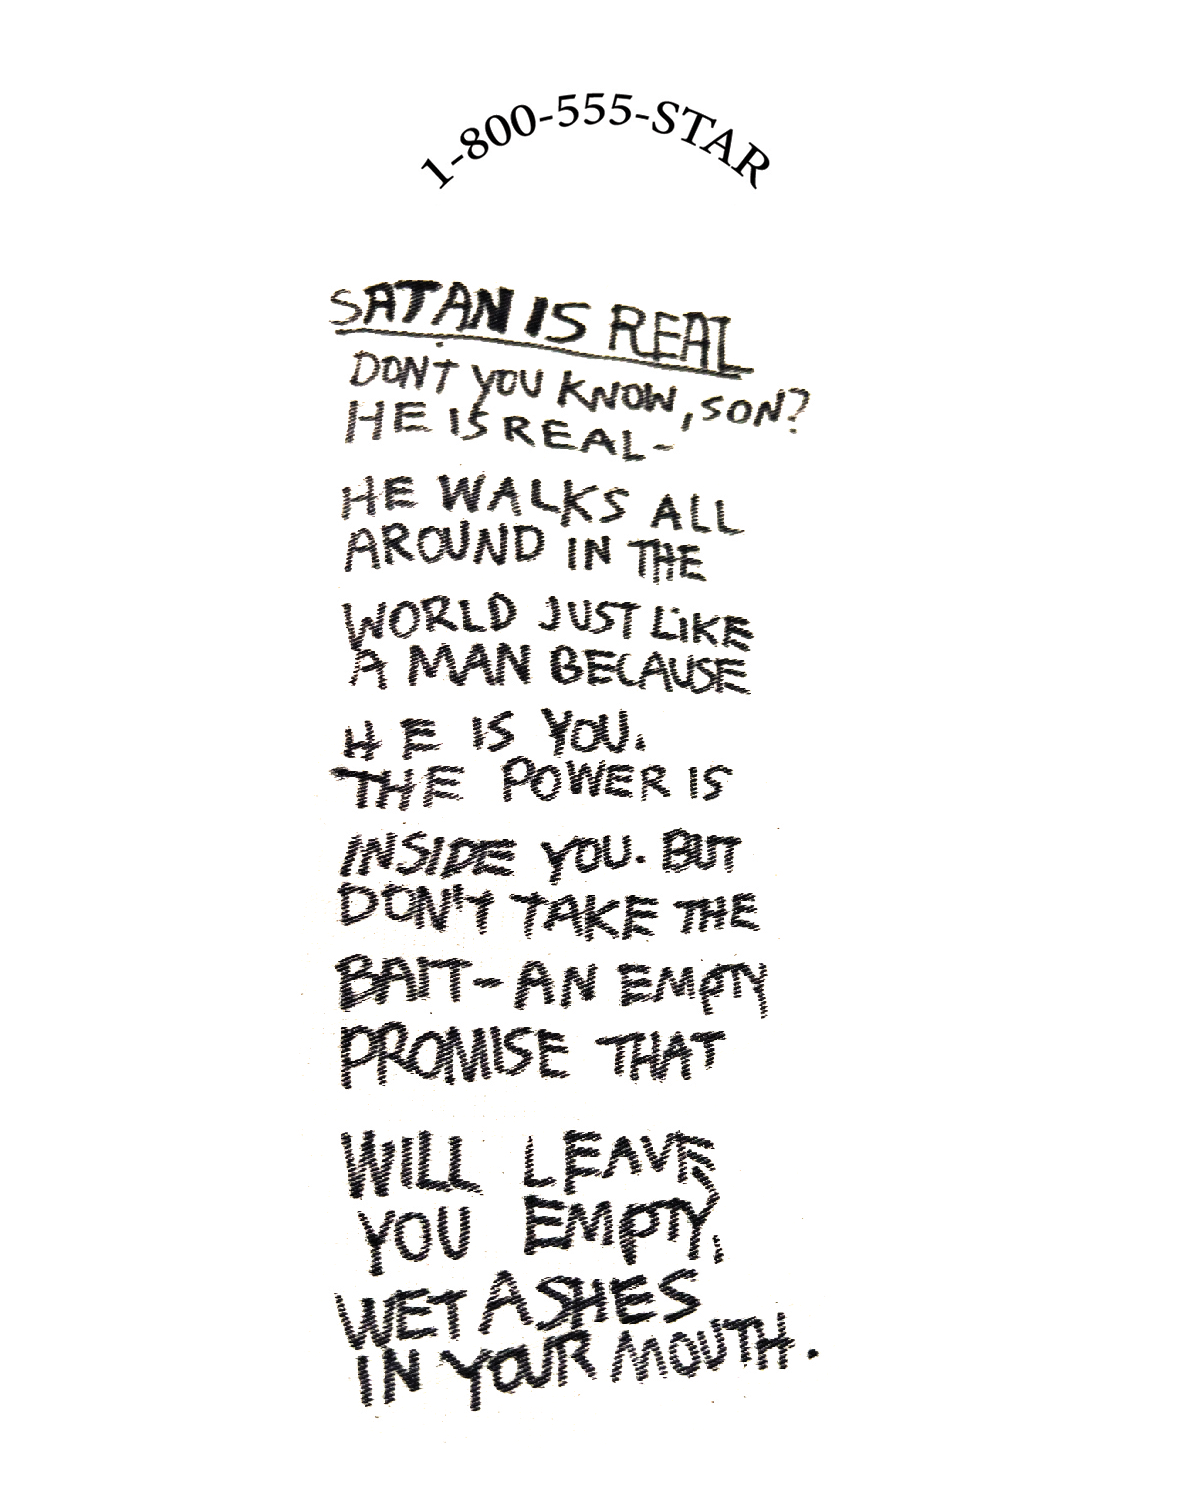 1-800-555-STAR
SATAN IS REAL
DON'T YOU KNOW, SON?
HE IS REAL-
HE WALKS ALL
AROUND IN THE
WORLD JUST LIKE
A MAN BECAUSE
HE IS YOU.
THE POWER IS
INSIDE YOU. BUT
DON'T TAKE THE
BAIT-AN EMPTY
PROMISE THAT
WILL LEAVE
YOU EMPTY,
WET ASHES
IN YOUR MOUTH.